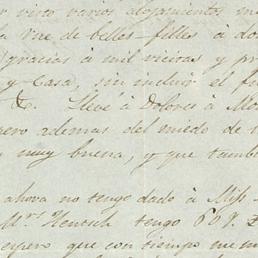 r visto varios alojamientos m
la rue de belles-filles à do
(gracias à mil visitas y pr
y casa, sin incluir el f
&. Llevé à Dolores à Mo
pero ademas del miedo de
muy buena, y que tambi
ahora no tengo dado à Miss
Mrs Hentsch tengo 609.
espero que con tiempo me m